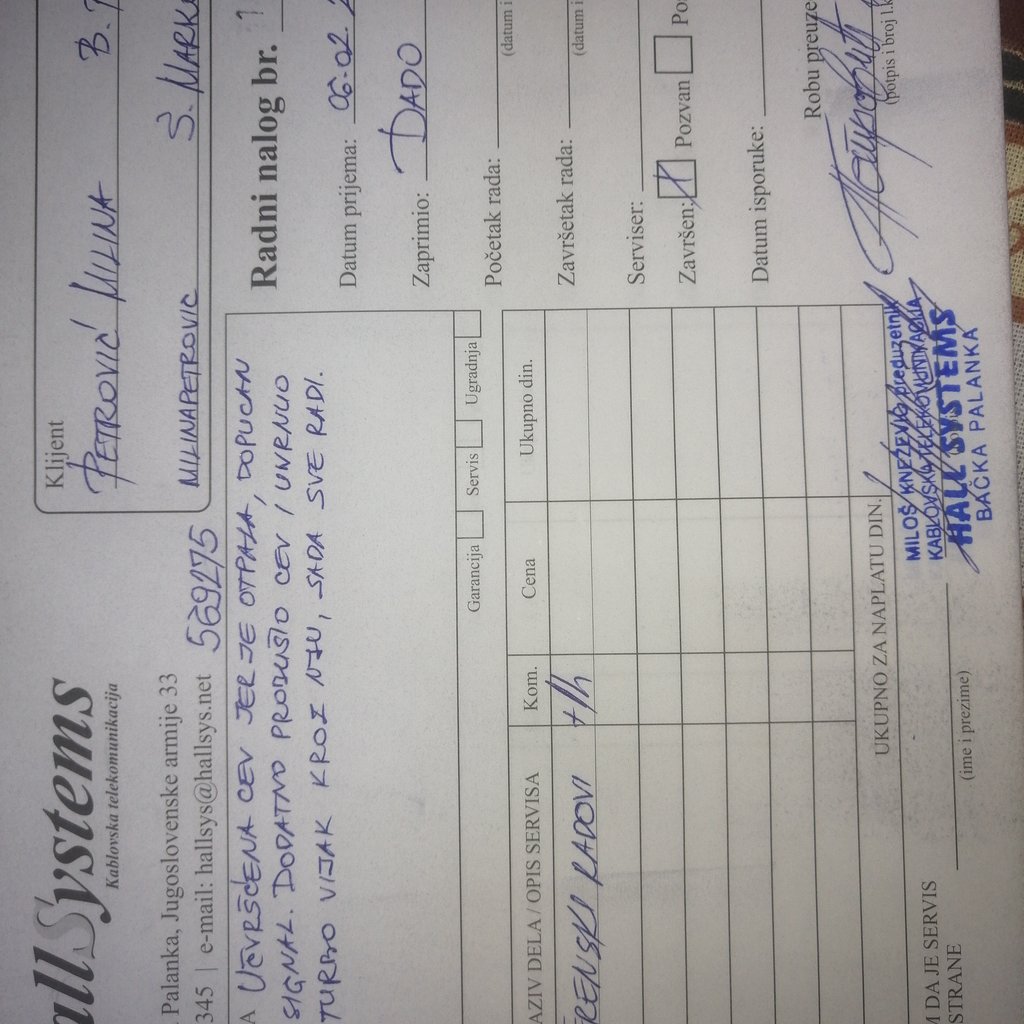 allSystems
Kablovska telekomunikacija
Palanka, Jugoslovenske armije 33
345 | e-mail: hallsys@hallsys.net
569275
Klijent
PETROVIĆ MILINA B.
MILINAPETROVIC Š. MARK
A UČVRŠĆENA CEV JER JE OTPALA, DOPUCAN
SIGNAL. DODATNO PRODUŠIO CEV I UVRNUO
TURBO VIJAK KROZ NJU, SADA SVE RADI.
Garancija Servis Ugradnja
Radni nalog br.
Datum prijema: 06.02.
Zaprimio: DADO
Početak rada:
(datum i
Završetak rada:
(datum i
Serviser:
Završen: Pozvan Po
Datum isporuke:
Robu preuze
(potpis i broj l.k
AZIV DELA / OPIS SERVISA Kom. Cena Ukupno din.
RENSKI RADOVI
UKUPNO ZA NAPLATU DIN.
MILOŠ KNEŽEVIĆ preduzetnik
KABLOVSKA TELEKOMUNIKACIJA
HALL SYSTEMS
BAČKA PALANKA
M DA JE SERVIS
STRANE
(ime i prezime)